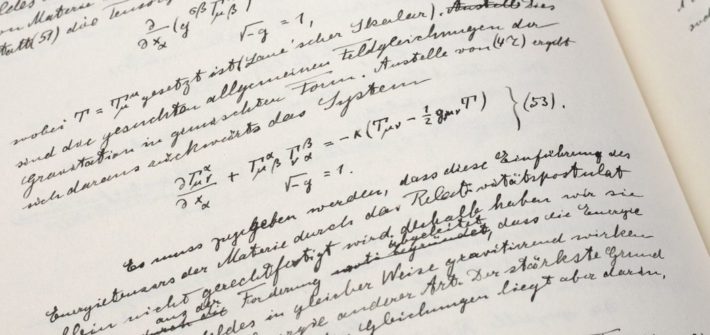 (51) die Tensor
∂/∂x_α (g^{σβ} Γ^α_{μβ}
√-g = 1,
wobei T = T^α_μ gesetzt ist (Laue'scher Skalar). Anstelle dies
sind die gesuchten allgemeinen Feldgleichungen der
Gravitation in gemischter Form. Anstelle von (47) ergibt
sich daraus rückwärts das System
∂Γ^α_{μν}/∂x_α + Γ^α_{μβ} Γ^β_{να} = -κ(T_{μν} - 1/2 g_{μν} T) } (53).
√-g = 1.
Es muss zugegeben werden, dass diese Einführung des
Energietensors der Materie durch das Relativitätspostulat
allein nicht gerechtfertigt wird; deshalb haben wir sie
aus der abgeleitet
durch die Forderung begründet, dass die Energie
feldes in gleicher Weise gravitierend wirken
Energie anderer Art. Der stärkste Grund
Gleichungen liegt aber darin,